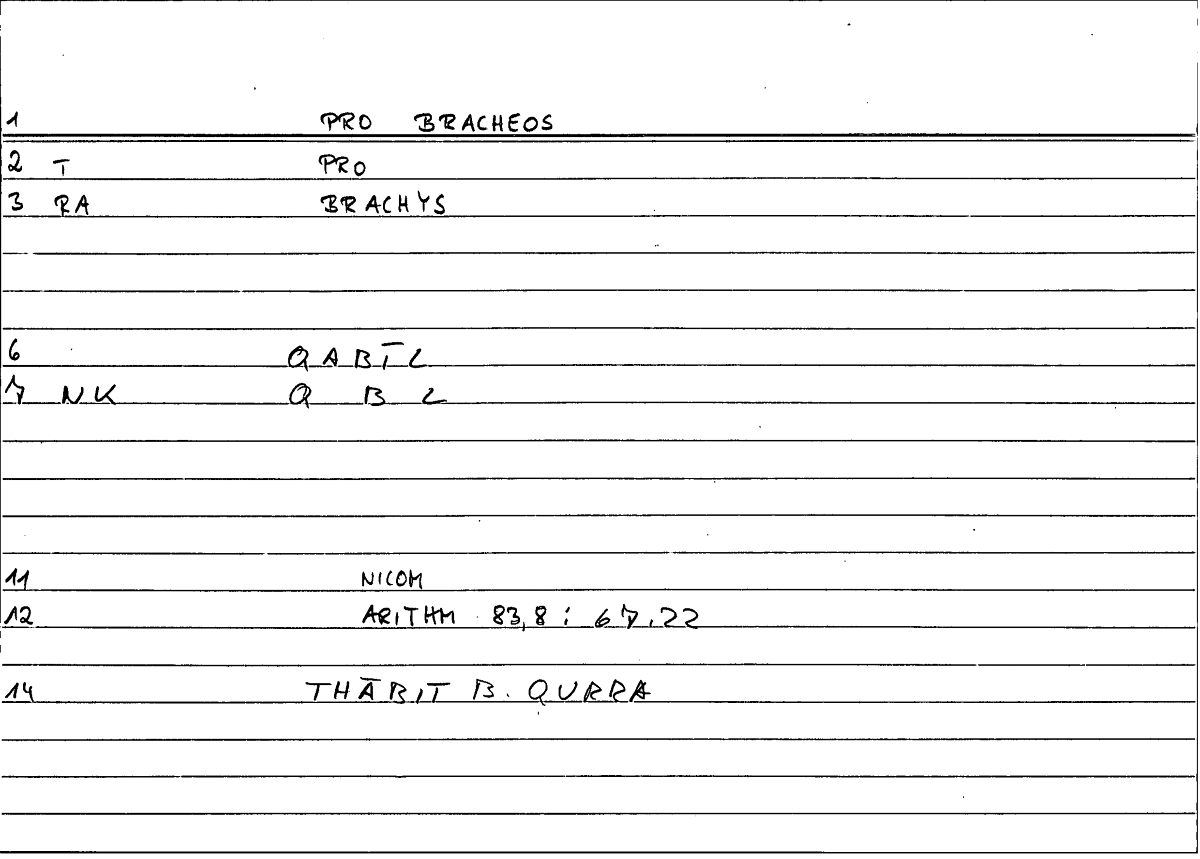 1 PRO BRACHEOS
2 T PRO
3 RA BRACHYS
6 QABĪL
7 NK Q B L
11 NICOM
12 ARITHM 83,8 : 67.22
14 THĀBIT B. QURRA